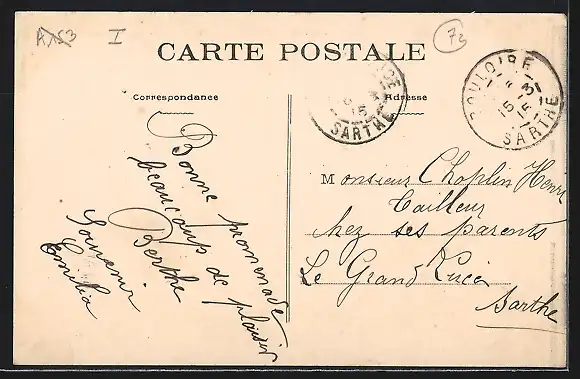 A153 I 72
CARTE POSTALE
Correspondance
Adresse
SARTHE
BOULOIRE
15
SARTHE
Bonne promenade
beaucoup de plaisir
Berthe
Souvenir
Emilia
Monsieur Choplin Henri
Tailleur
chez ses parents
Le Grand Lucé
Sarthe